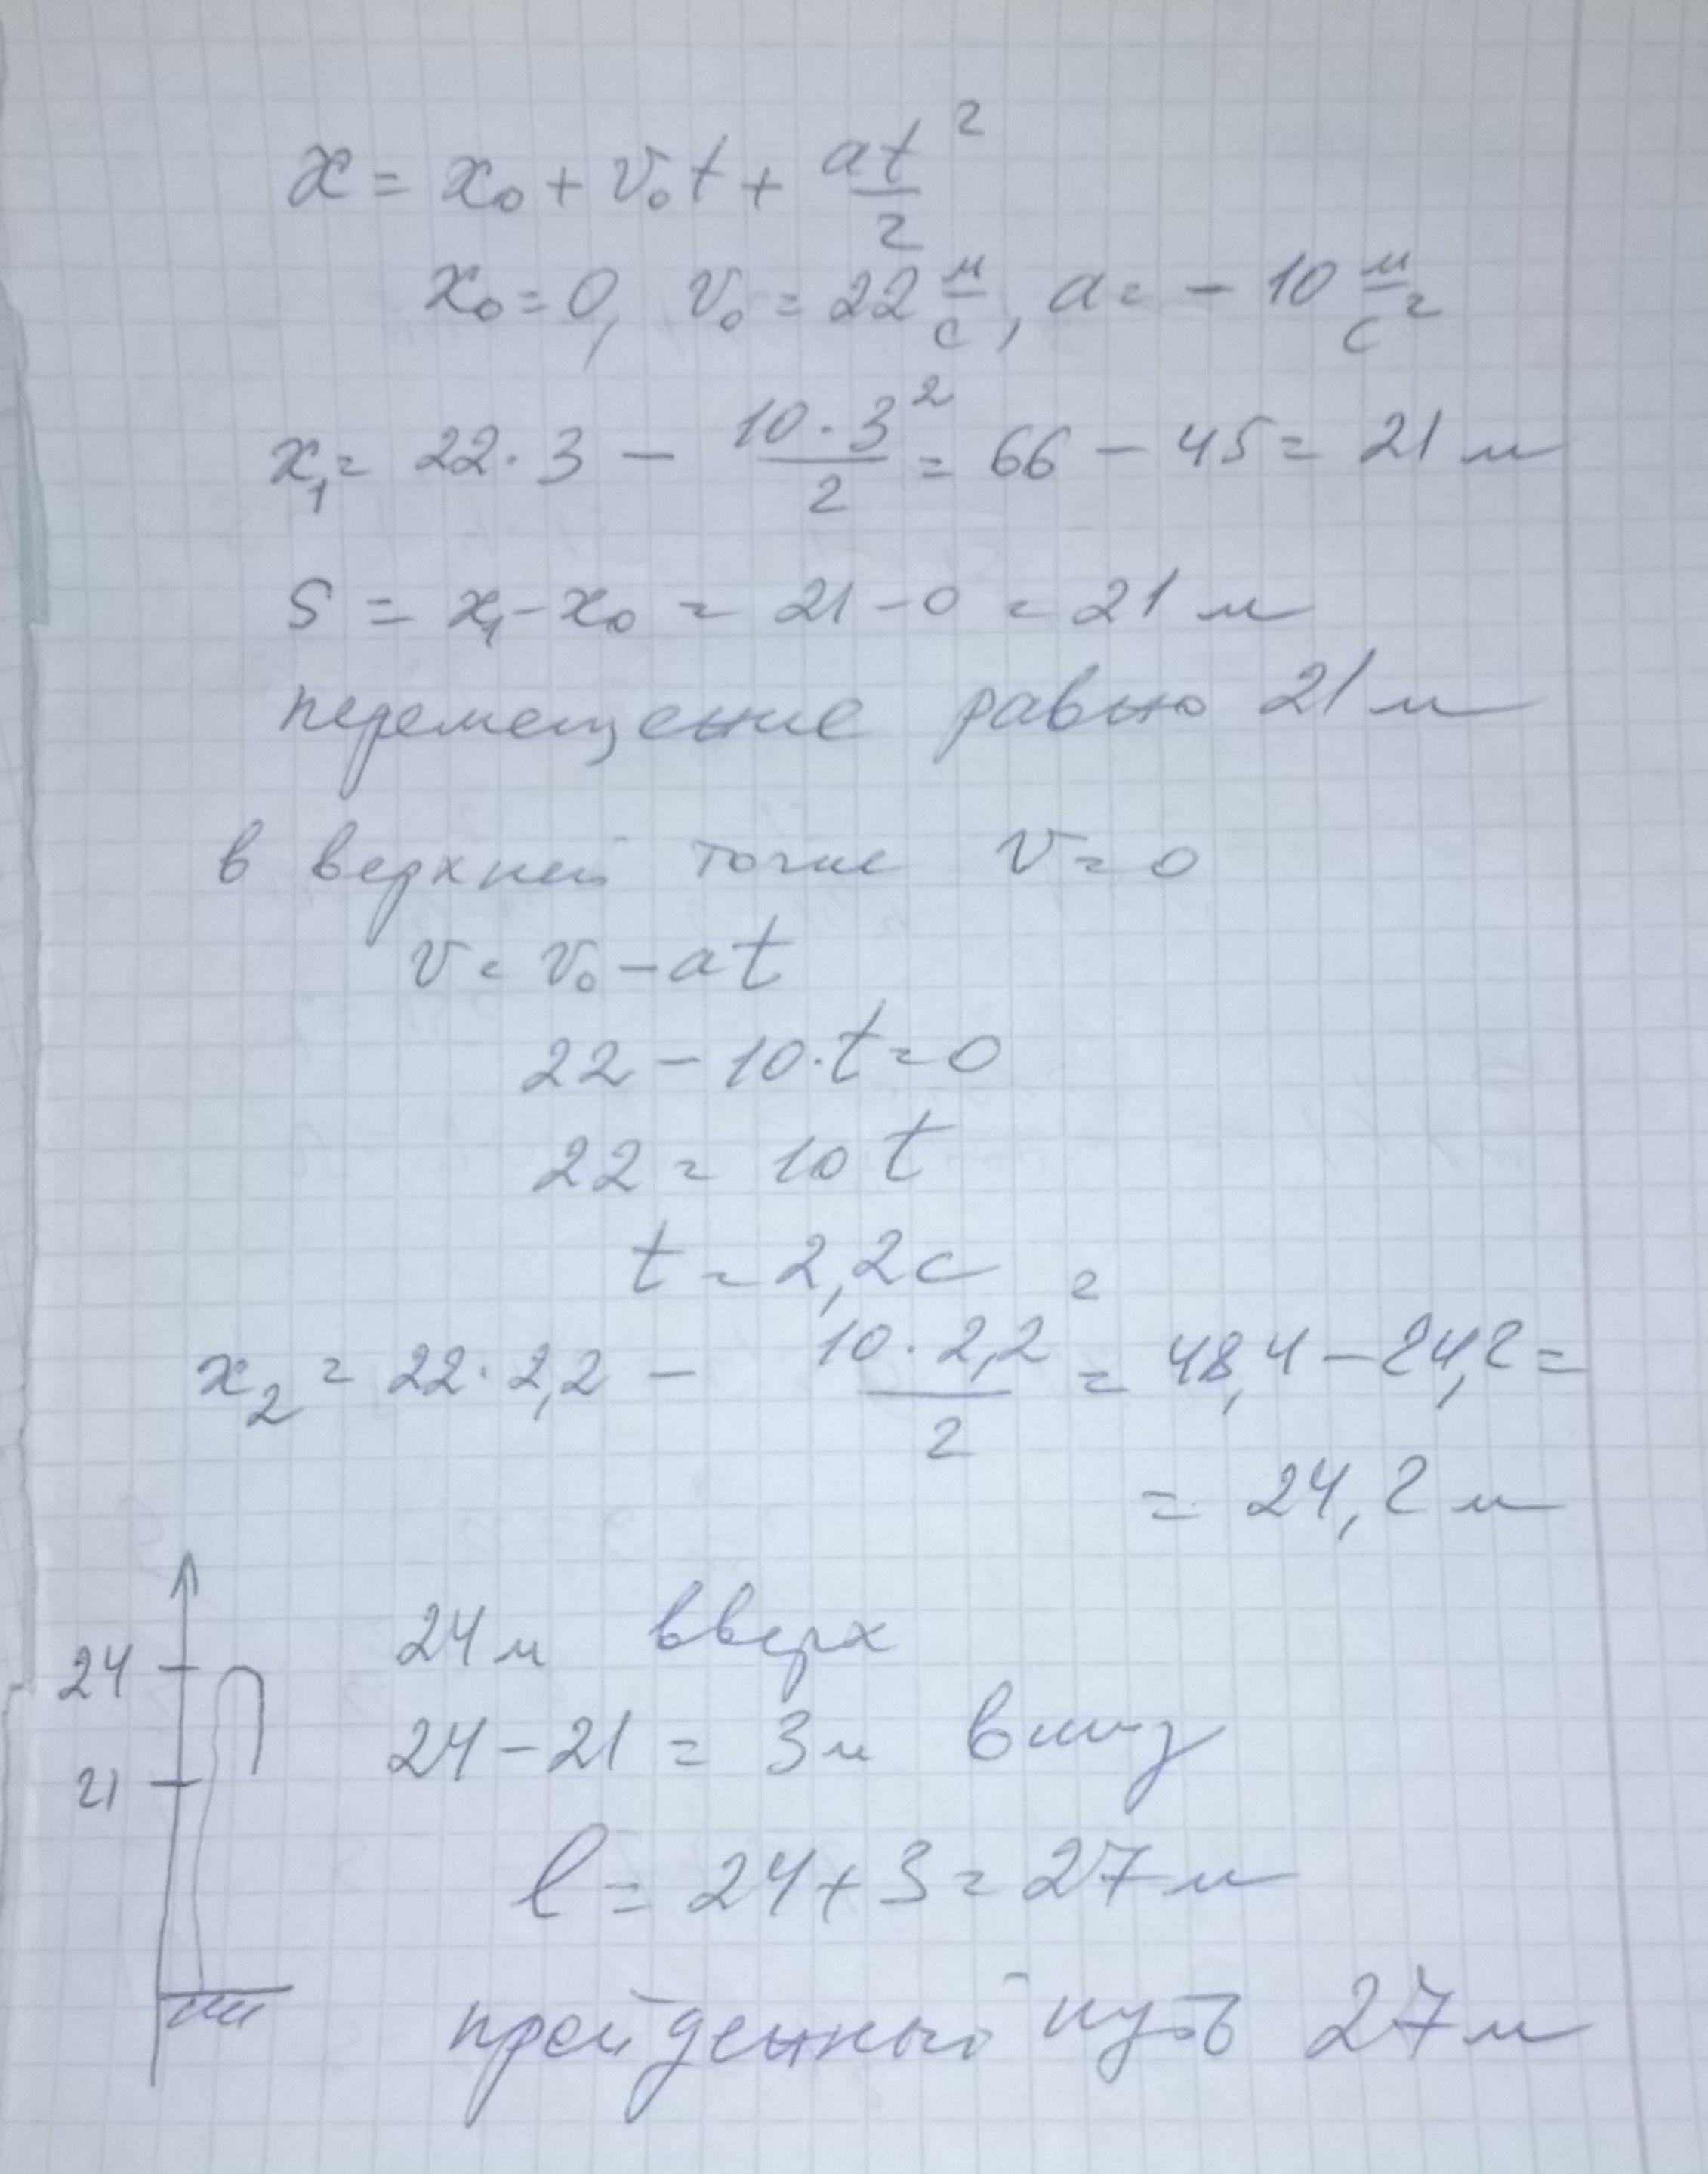 x = x₀ + v₀t + at²/2
x₀ = 0, v₀ = 22 м/с, a = - 10 м/с²
x₁ = 22·3 - 10·3²/2 = 66 - 45 = 21 м
S = x₁ - x₀ = 21 - 0 = 21 м
перемещение равно 21 м
в верхней точке v = 0
v = v₀ - at
22 - 10·t = 0
22 = 10 t
t = 2,2 с
x₂ = 22·2,2 - 10·2,2²/2 = 48,4 - 24,2 =
= 24,2 м
24 24 м вверх
21 24 - 21 = 3 м вниз
l = 24 + 3 = 27 м
пройденный путь 27 м